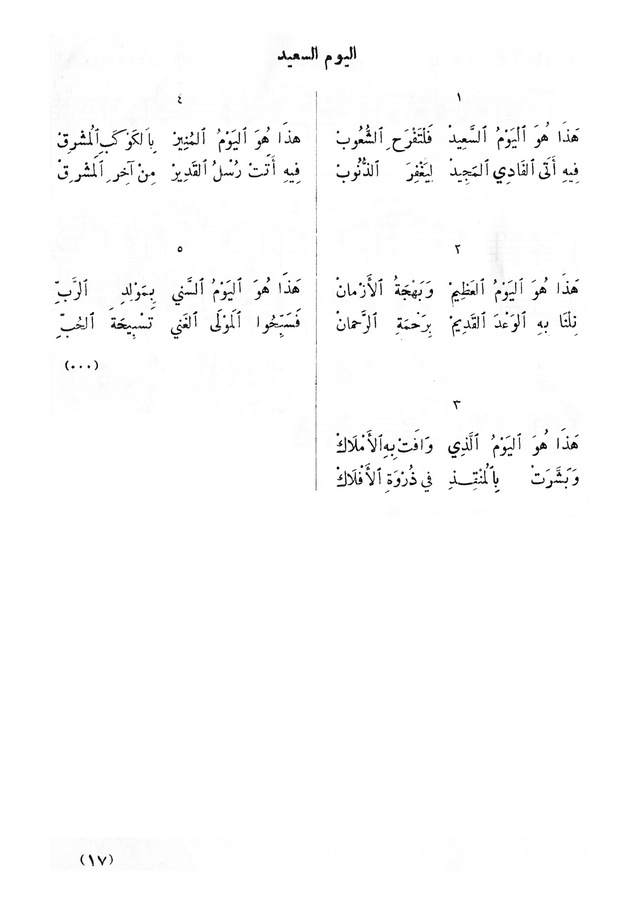 اليوم السعيد
١
هَذَا هُوَ ٱلْيَوْمُ ٱلسَّعِيدْ فَلْتَفْرَحِ ٱلشُّعُوبْ
فِيهِ أَتَى ٱلفَادِي ٱلمَجِيدْ لِيَغْفِرَ ٱلذُّنُوبْ
٢
هَذَا هُوَ ٱليَوْمُ ٱلعَظِيمْ وَبَهْجَةُ ٱلأَزْمَانْ
نِلْنَا بِهِ ٱلوَعْدَ ٱلقَدِيمْ بِرَحْمَةِ ٱلرَّحْمَانْ
٣
هَذَا هُوَ ٱليَوْمُ ٱلَّذِي وَافَتْ بِهِ ٱلأَمْلَاكْ
وَبَشَّرَتْ بِٱلمُنْقِذِ فِي ذُرْوَةِ ٱلأَفْلَاكْ
٤
هذَا هُوَ ٱليَوْمُ ٱلمُنِيرْ بِٱلكَوْكَبِ ٱلمُشْرِقْ
فِيهِ أَتَتْ رُسْلُ ٱلقَدِيرْ مِنْ آخِرِ ٱلمَشْرِقْ
٥
هَذَا هُوَ ٱليَوْمُ ٱلسَّنِي بِمَوْلِدِ ٱلرَّبِّ
فَسَبِّحُوا ٱلمَوْلَى ٱلغَنِي تَسْبِيحَةَ ٱلحُبِّ
(٠٠٠)
(١٧)